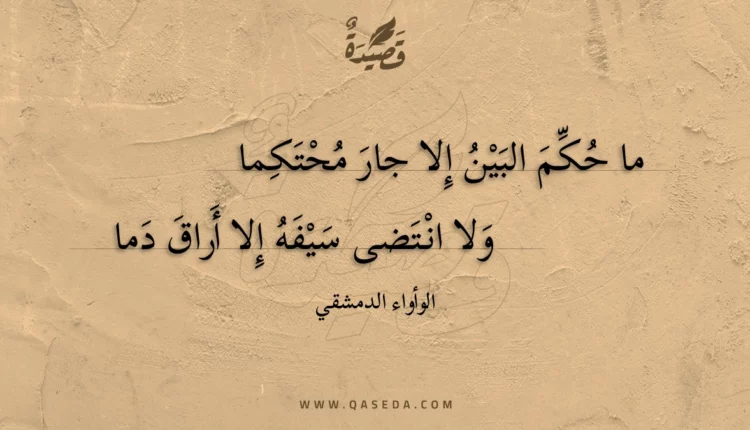 قَصِيْدَةٌ
ما حُكِّمَ البَيْنُ إِلا جارَ مُحْتَكِما
وَلا انْتَضى سَيْفَهُ إِلا أَراقَ دَما
الوأواء الدمشقي
WWW.QASEDA.COM